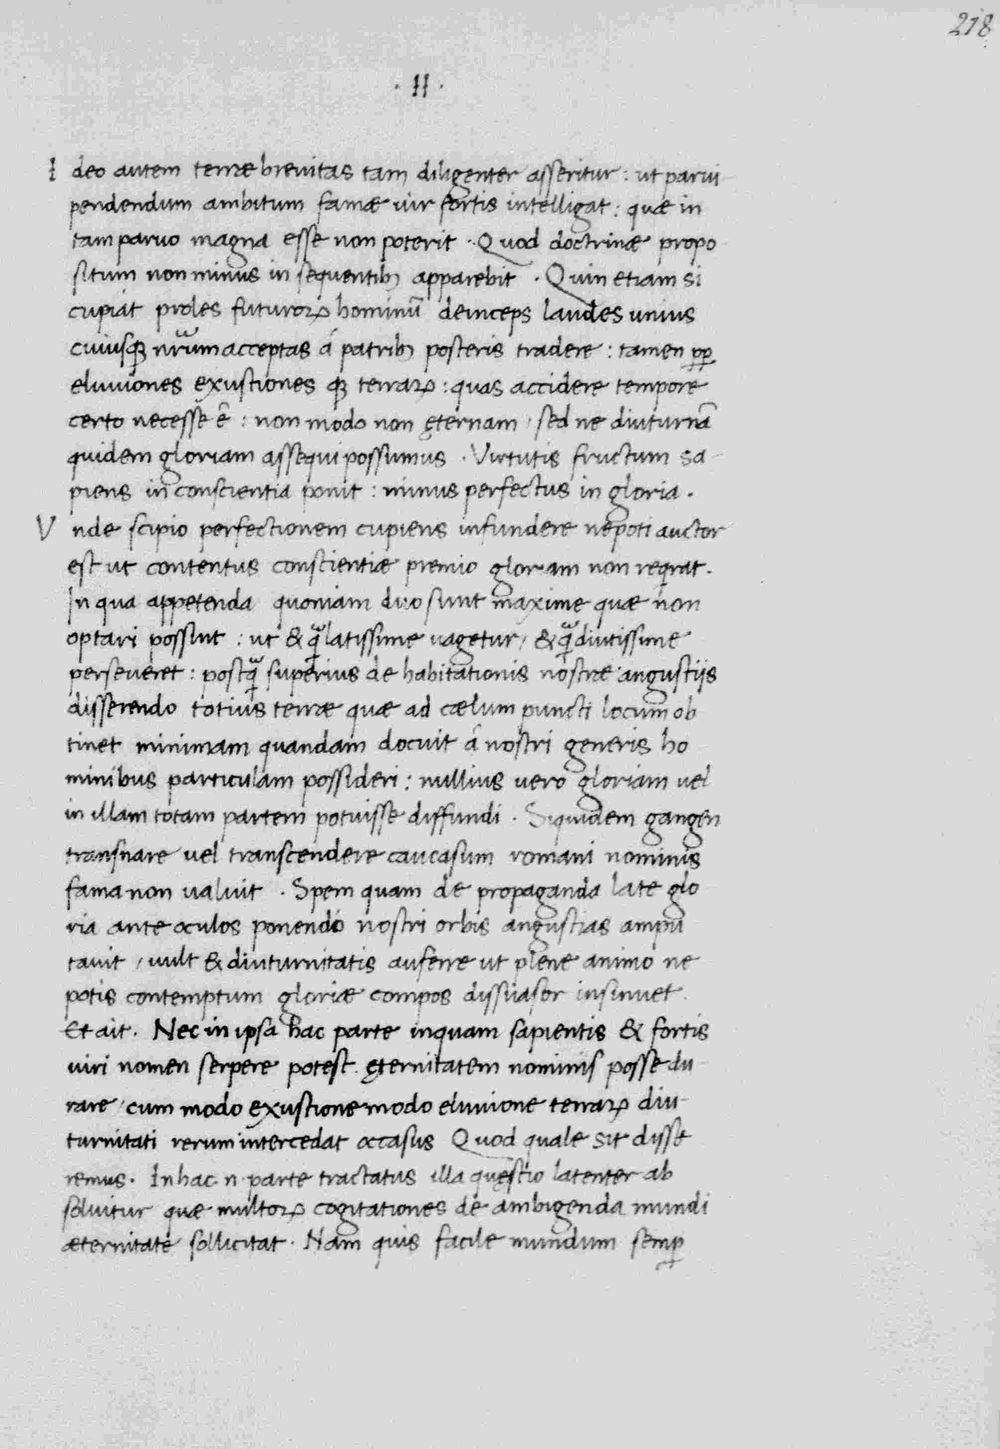 218
· II ·
I deo autem terræ brevitas tam diligenter asseritur : ut parvi
pendendum ambitum famæ vir fortis intelligat : quæ in
tam parvo magna esse non poterit · Quod doctrinæ propo
situm non minus in sequentibꝫ apparebit · Quin etiam si
cupiat proles futuroꝝ hominū deinceps laudes unius
cuiusqꝫ nr̄um acceptas á patribꝫ posteris tradere : tamen ꝓpꝑ
eluviones exustiones qꝫ terraꝝ : quas accidere tempore
certo necesse ē : non modo non ęternam / sed ne diuturnā
quidem gloriam assequi possumus · Virtutis fructum sa-
piens in conscientia ponit : minus perfectus in gloria ·
V nde scipio perfectionem cupiens infundere nepoti auctor
est ut contentus conscientiæ premio gloriam non reqrat ·
In qua appetenda quoniam duo sunt maxime quæ non
optari possint : ut & q̄ latissime vagetur / & q̄ diutissime
perseveret : postq̄ superius de habitationis nostræ angustijs
disserendo totius terræ quæ ad cælum puncti locum ob
tinet minimam quandam docuit á nostri generis ho
minibus particulam possideri : nullius vero gloriam vel
in illam totam partem potuisse diffundi · Siquidem gangen
transnare vel transcendere caucasum romani nominis
fama non valuit · Spem quam de propaganda late glo
ria ante oculos ponendo nostri orbis angustias ampu
tavit / vult & diuturnitatis auferre ut plene animo ne
potis contemptum gloriæ compos dissuasor insinuet ·
Et ait · Nec in ipsa hac parte inquam sapientis & fortis
viri nomen serpere potest · ęternitatem nominis posse du-
rare / cum modo exustione modo eluvione terraꝝ diu-
turnitati rerum intercedat occasus Quod quale sit disse
remus · In hac · n · parte tractatus illa quęstio latenter ab
solvitur quæ multoꝝ cogitationes de ambigenda mundi
æternitate sollicitat · Nam quis facile mundum semꝑ